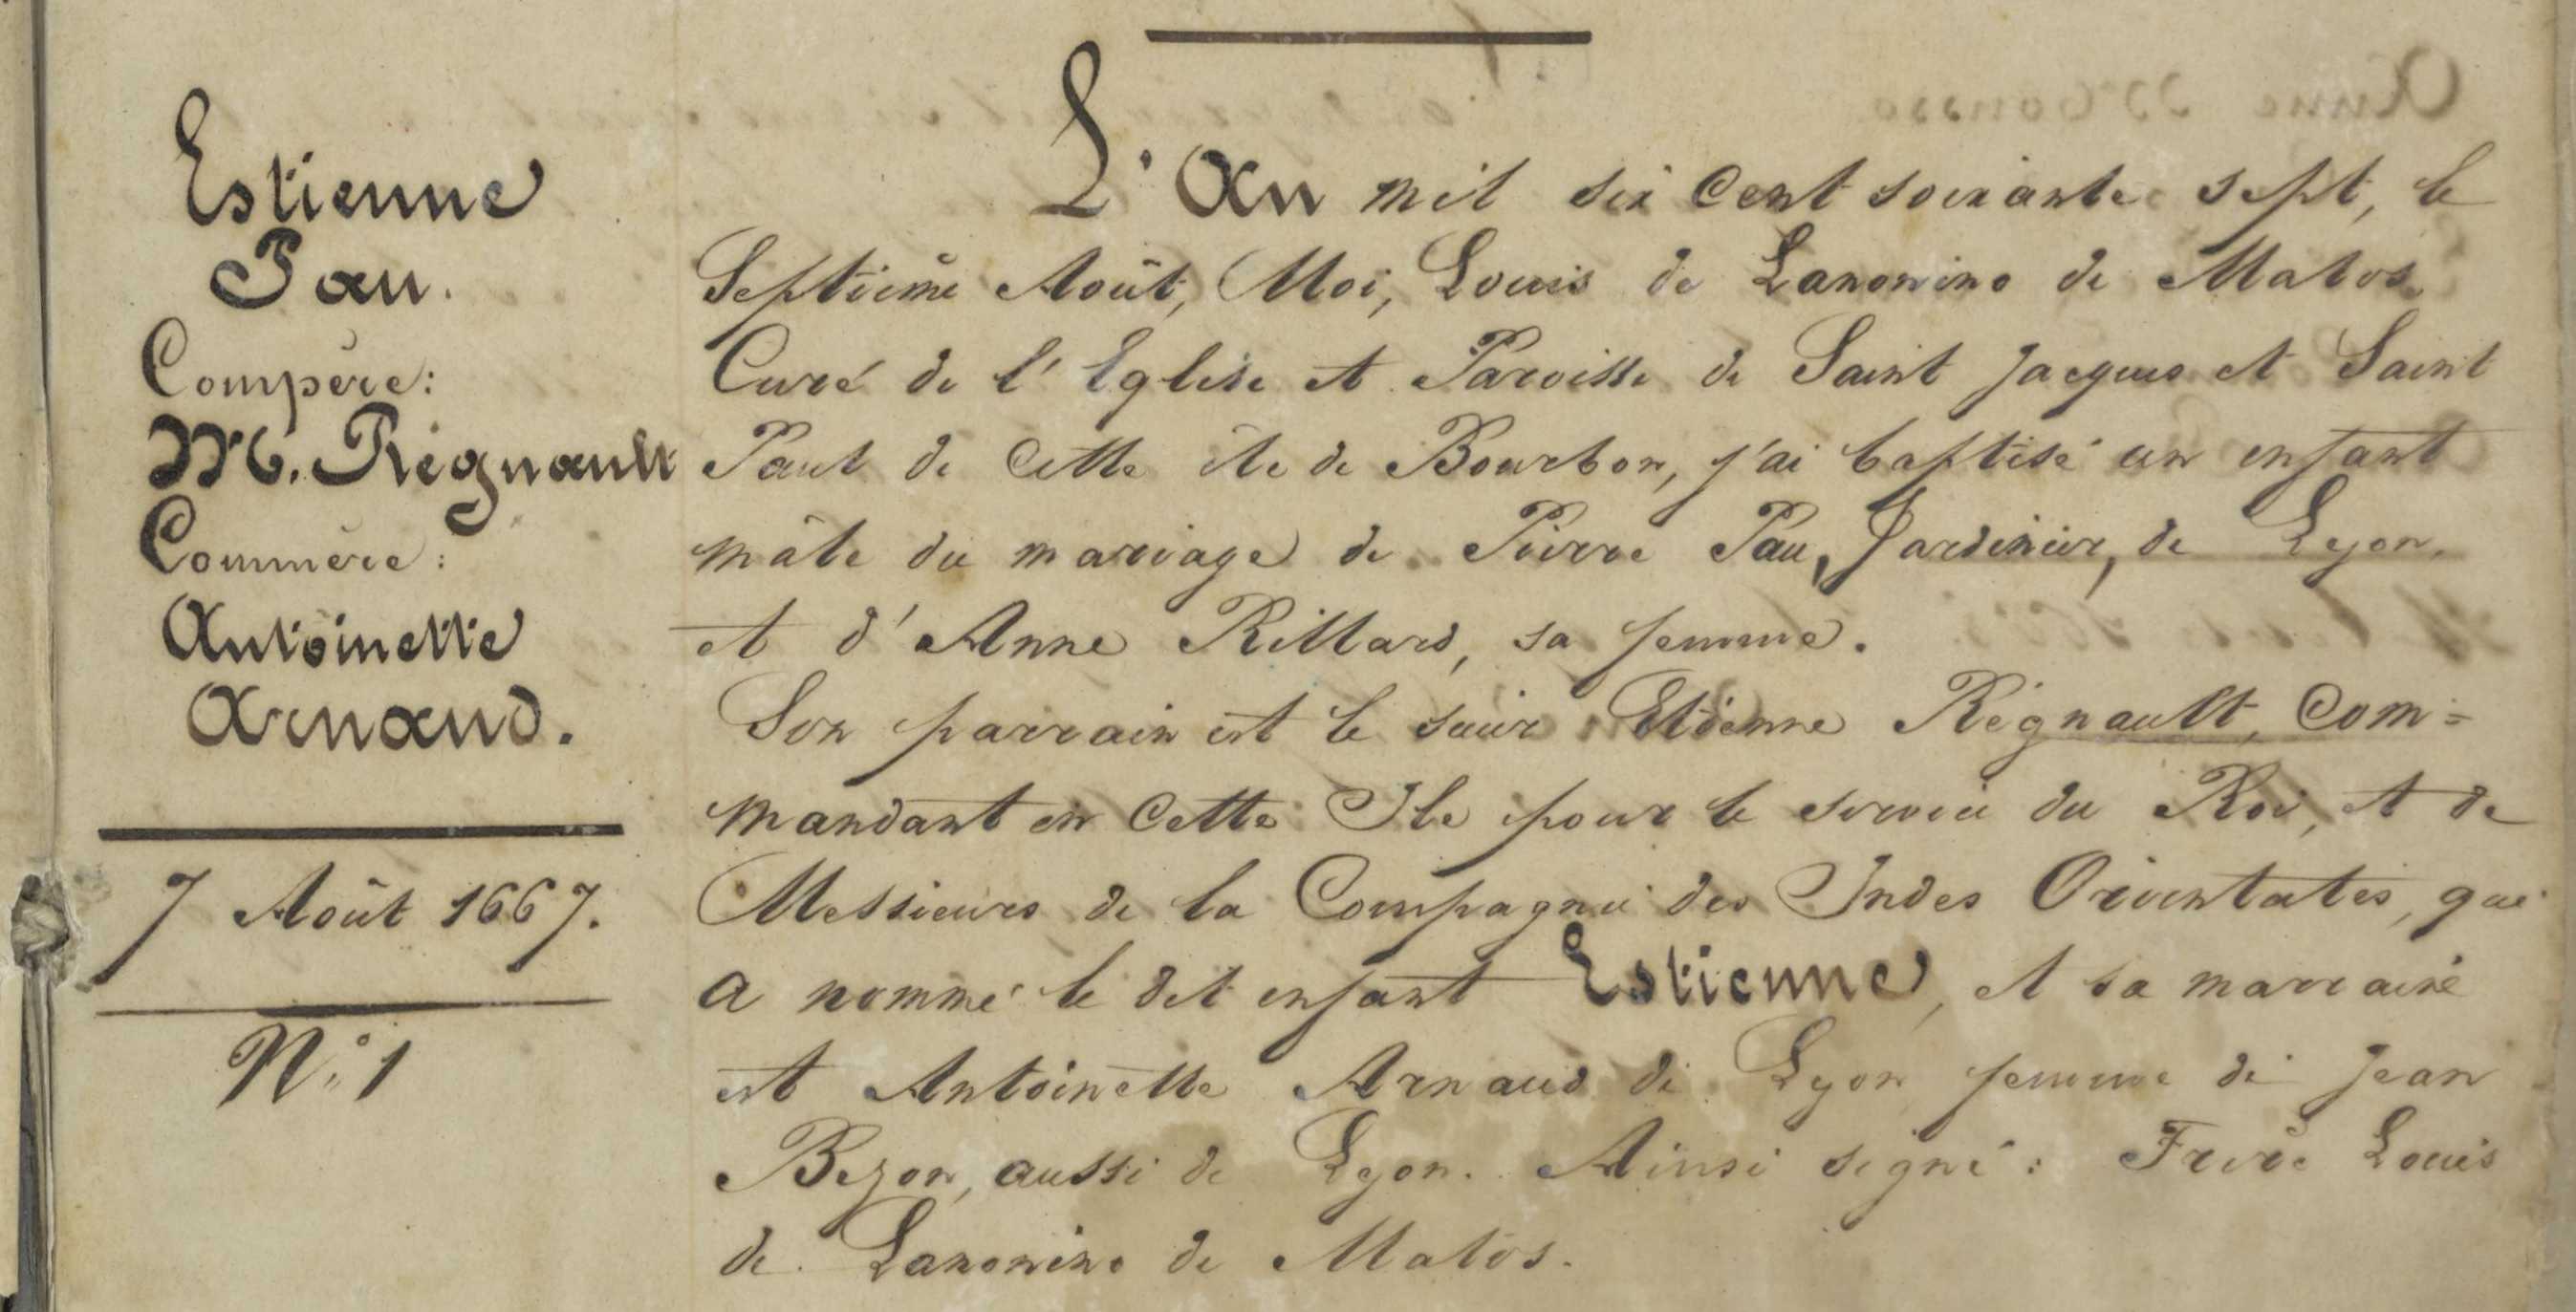 Estienne
Pau.
Compère:
M. Régnault
Commère:
Antoinette
Arnaud.
7 Août 1667.
N° 1
L'An mil six cent soixante sept, le
Septième Août, Moi, Louis de Lanonino de Matos
Curé de l'Eglise et Paroisse de Saint Jacques et Saint
Paul de cette île de Bourbon, j'ai baptisé un enfant
mâle du mariage de Pierre Pau, Jardinier, de Lyon,
et d'Anne Rillard, sa femme.
Son parrain est le sieur Etienne Régnault, Com=
mandant en cette Ile pour le service du Roi, et de
Messieurs de la Compagnie des Indes Orientales, qui
a nommé le dit enfant Estienne, et sa marraine
est Antoinette Arnaud de Lyon femme de Jean
Bezon, aussi de Lyon. Ainsi signé: Frère Louis
de Lanonino de Matos.